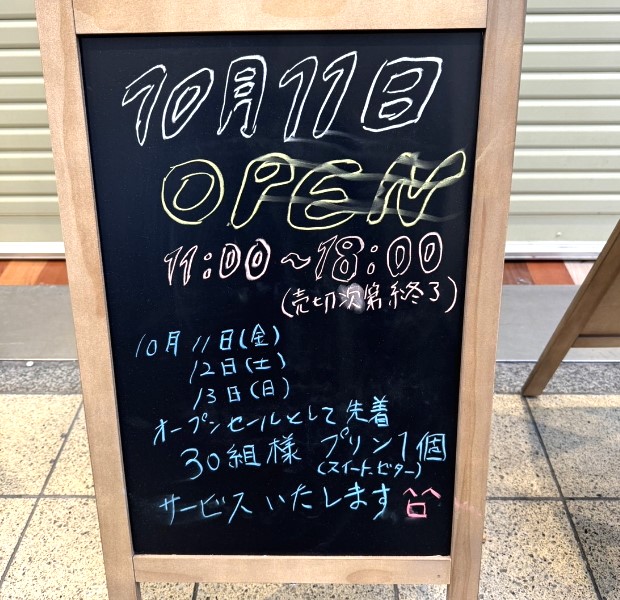 10月11日
OPEN
11:00～18:00
(売切次第終了)
10月11日(金)
12日(土)
13日(日)
オープンセールとして先着
30組様 プリン1個
(スイートビター)
サービスいたします